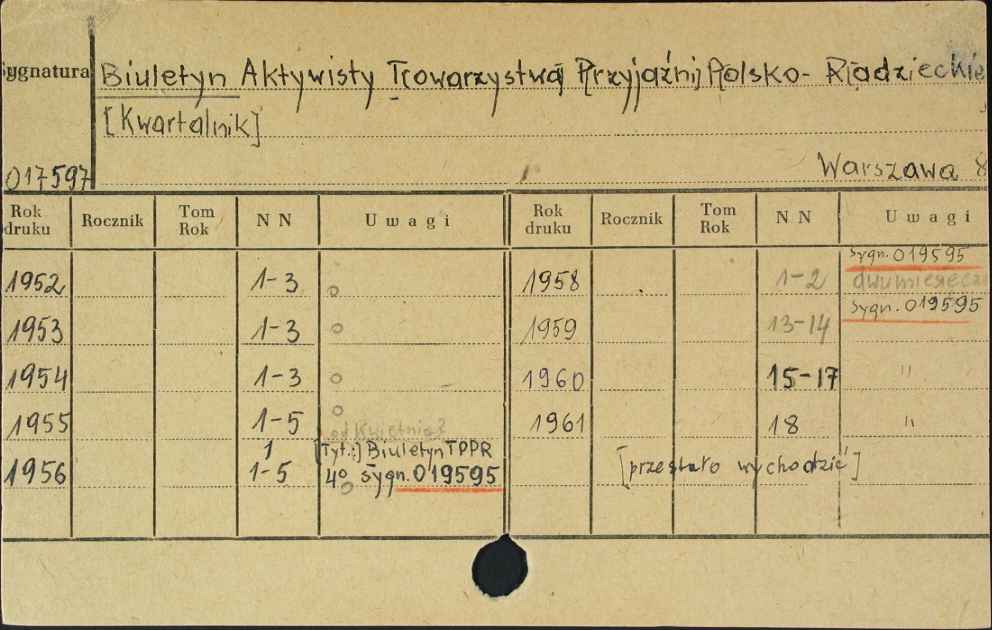 Sygnatura Biuletyn Aktywisty Towarzystwa Przyjaźni Polsko-Radzieckie
[Kwartalnik]
017597 Warszawa 8
Rok druku Rocznik Tom Rok N N Uwagi Rok druku Rocznik Tom Rok N N Uwagi
sygn. 019595
1952 1-3 1958 1-2 dwumiesięcz
sygn. 019595
1953 1-3 1959 13-14
1954 1-3 1960 15-17 "
1955 1-5 1961 18 "
od Kwietnia?
1 [Tyt.:] Biuletyn TPPR
1956 1-5 4° sygn. 019595 [przestało wychodzić]